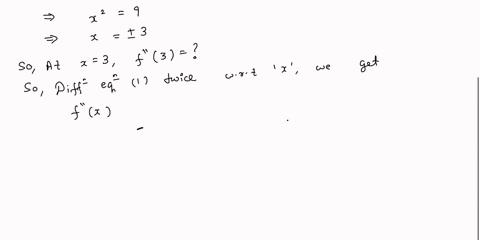 ⇒ x² = 9
⇒ x = ± 3
So, At x = 3, f"(3) = ?
So, Diffⁿ eqⁿ (1) twice w.r.t 'x', we get
f"(x)
-